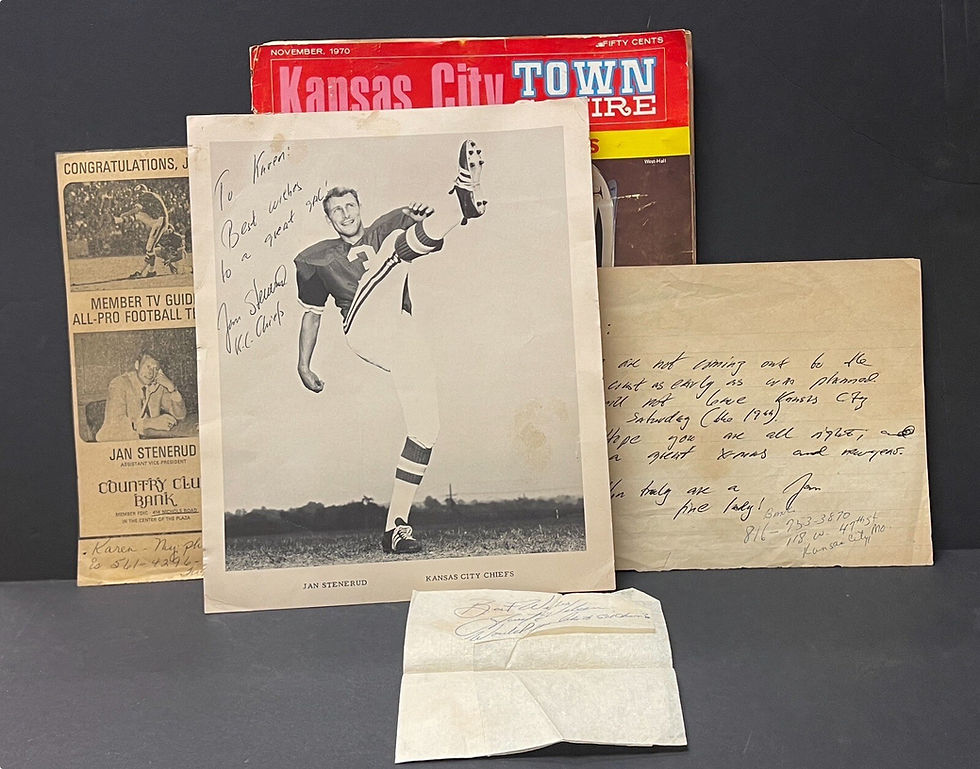 NOVEMBER, 1970
FIFTY CENTS
Kansas City TOWN
SQUIRE
S
West-Hall
CONGRATULATIONS, J
MEMBER TV GUID
ALL-PRO FOOTBALL T
JAN STENERUD
ASSISTANT VICE PRESIDENT
COUNTRY CLU
BANK
MEMBER FDIC 414 NICHOLS ROAD
IN THE CENTER OF THE PLAZA
Karen - My ph
is 561-4296
To Karen:
Best wishes
to a great gal!
Jan Stenerud
K.C. Chiefs
JAN STENERUD
KANSAS CITY CHIEFS
:
are not coming out to the
coast as early as was planned.
not leave Kansas City
Saturday (Dec 19th).
hope you are all right, and
a great Xmas and newyear.
You truly are a Jan
fine lady!
816-753-3870
118 W. 47th st
Kansas City Mo.
Best Wishes